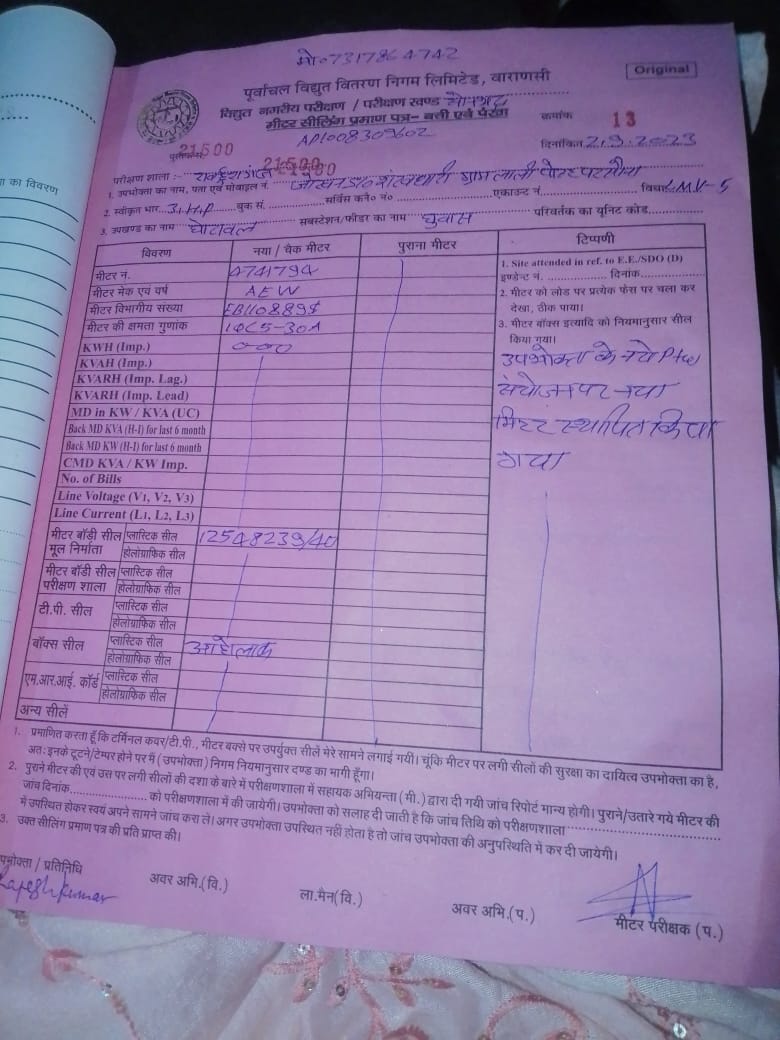 मो० 7317864742
पूर्वाचल विद्युत वितरण निगम लिमिटेड, वाराणसी
Original
विद्युत नगरीय परीक्षण / परीक्षण खण्ड सोनभद्र
मीटर सीलिंग प्रमाण पत्र– बत्ती एवं पंखा
क्रमांक 13
AP1008309602
दिनांकित 2.9.2023
21500
परीक्षण शाला :-
21500
1. उपभोक्ता का नाम, पता एवं मोबाइल नं.
विधा LMV-5
2. स्वीकृत भार 3 HP बुक सं. सर्विस कनै० न० एकाउन्ट नं.
3. उपखण्ड का नाम घोरावल सबस्टेशन/फीडर का नाम परिवर्तक का यूनिट कोड
विवरण नया / चैक मीटर पुराना मीटर टिप्पणी
मीटर नं. 4741794
मीटर मेक एवं वर्ष AEW
मीटर विभागीय संख्या
मीटर की क्षमता गुणांक
KWH (Imp.)
KVAH (Imp.)
KVARH (Imp. Lag.)
KVARH (Imp. Lead)
MD in KW / KVA (UC)
Back MD KVA (H-I) for last 6 month
Back MD KW (H-I) for last 6 month
CMD KVA / KW Imp.
No. of Bills
Line Voltage (V1, V2, V3)
Line Current (L1, L2, L3)
मीटर बॉडी सील मूल निर्माता प्लास्टिक सील 12548239/40
होलोग्राफिक सील
मीटर बॉडी सील परीक्षण शाला प्लास्टिक सील
होलोग्राफिक सील
टी.पी. सील प्लास्टिक सील
होलोग्राफिक सील
बॉक्स सील प्लास्टिक सील
होलोग्राफिक सील
एम.आर.आई. कॉर्ड प्लास्टिक सील
होलोग्राफिक सील
अन्य सीलें
1. Site attended in ref. to E.E./SDO (D)
इण्डेन्ट नं. दिनांक
2. मीटर को लोड पर प्रत्येक फेस पर चला कर
देखा, ठीक पाया।
3. मीटर बॉक्स इत्यादि को नियमानुसार सील
किया गया।
उपभोक्ता के नये
संयोजन पर नया
मीटर स्थापित किया
गया
1. प्रमाणित करता हूँ कि टर्मिनल कवर/टी.पी., मीटर बक्से पर उपर्युक्त सीलें मेरे सामने लगाई गयी। चूंकि मीटर पर लगी सीलों की सुरक्षा का दायित्व उपभोक्ता का है,
अतः इनके टूटने/टेम्पर होने पर मैं (उपभोक्ता) निगम नियमानुसार दण्ड का भागी हूँगा।
2. पुराने मीटर की एवं उस पर लगी सीलों की दशा के बारे में परीक्षणशाला में सहायक अभियन्ता (मी.) द्वारा दी गयी जांच रिपोर्ट मान्य होगी। पुराने/उतारे गये मीटर की
जांच दिनांक को परीक्षणशाला में की जायेगी। उपभोक्ता को सलाह दी जाती है कि जांच तिथि को परीक्षणशाला
में उपस्थित होकर स्वयं अपने सामने जांच करा ले। अगर उपभोक्ता उपस्थित नहीं होता है तो जांच उपभोक्ता की अनुपस्थिति में कर दी जायेगी।
3. उक्त सीलिंग प्रमाण पत्र की प्रति प्राप्त की।
पभोक्ता / प्रतिनिधि
Rajesh Kumar
अवर अभि.(वि.)
ला.मैन(वि.)
अवर अभि.(प.)
मीटर परीक्षक (प.)
ा का विवरण